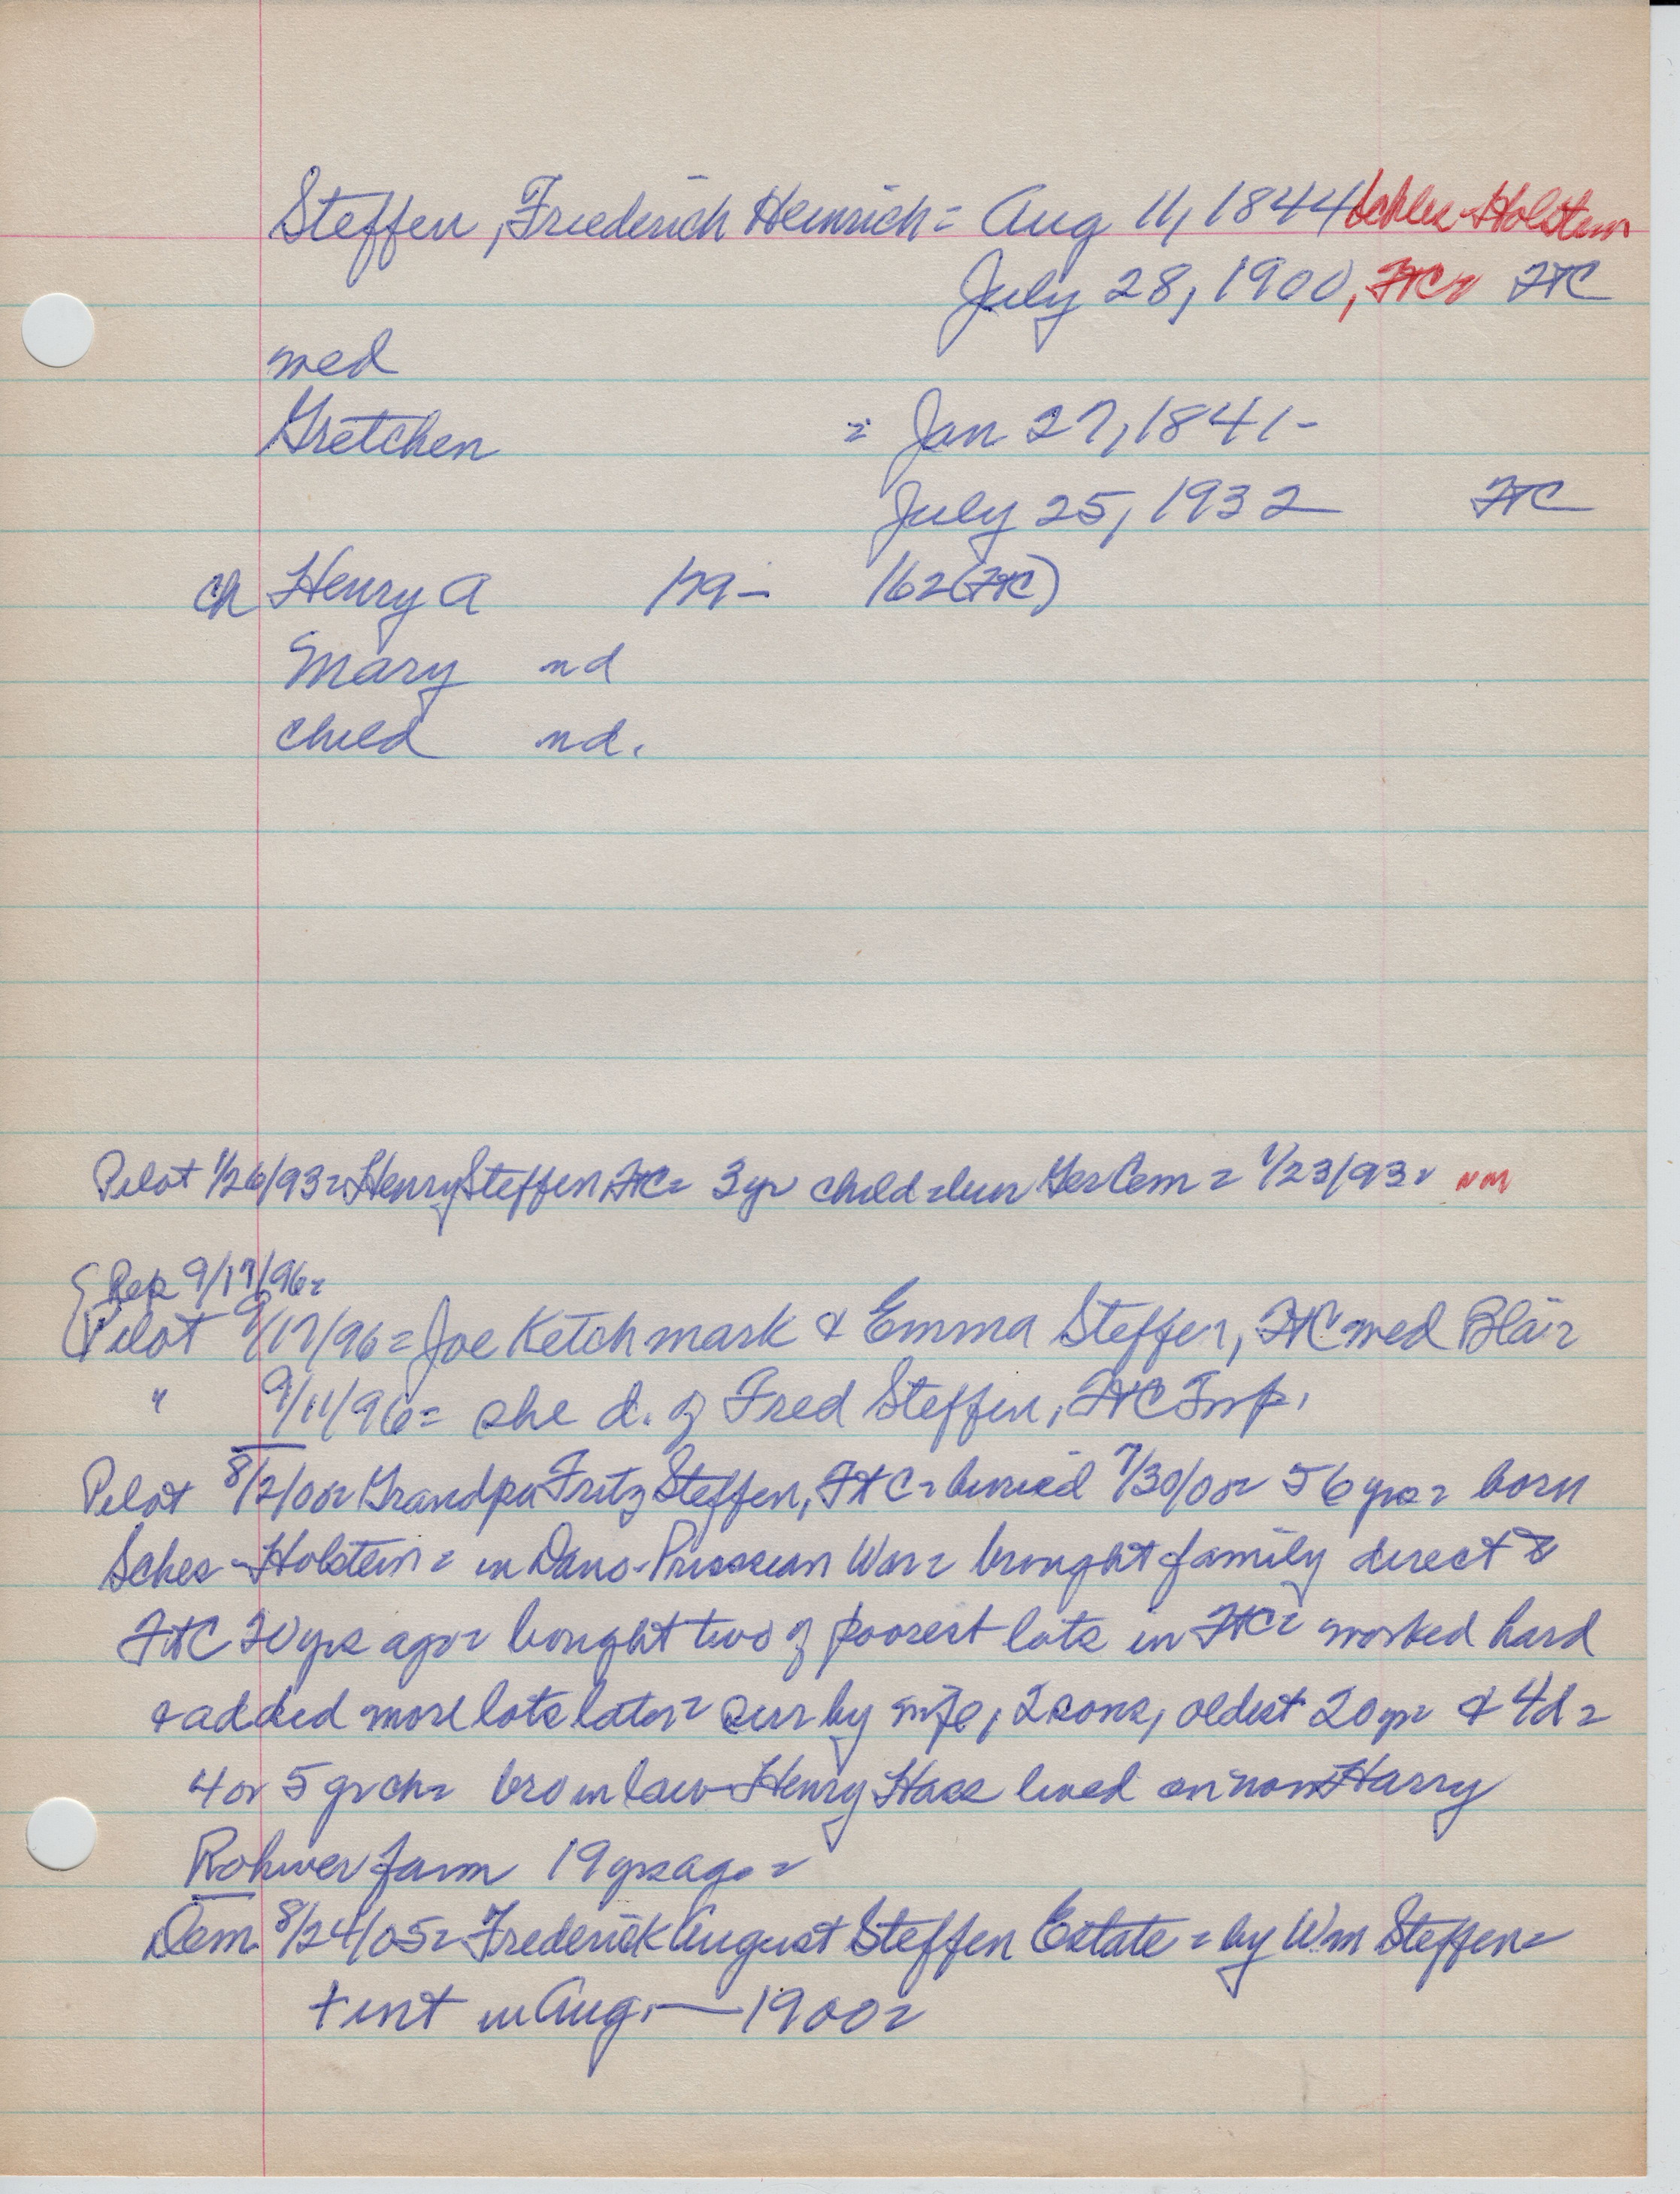 Steffen, Friederich Heinrich = Aug 11, 1844 Schles-Holstein
July 28, 1900, FtC= FtC
med
Gretchen = Jan 27, 1841-
July 25, 1932 FtC
ch Henry A 179- 162 (FtC)
Mary nd
child nd.
Pilot 1/26/93= Henry Steffen, FtC= 3yr child bur Ger Cem = 1/23/93= nm
{ Rep 9/17/96=
Pilot 9/17/96= Joe Ketchmark & Emma Steffen, FtC med Blair
" 9/11/96= she d. of Fred Steffen, FtC Twp.
Pilot 8/2/00= Grandpa Fritz Steffen, FtC= buried 7/30/00= 56 yrs= born
Sches-Holstein= in Dano-Prussian War= brought family direct to
FtC 20 yrs ago= bought two of poorest lots in FtC= worked hard
& added more lots later= sur by wife, 2 sons, oldest 20yr & 4d=
4 or 5 grch= bro in law Henry Haas lived on now Harry
Rohwer farm 19 yrs ago=
Dem 8/24/05= Frederick August Steffen Estate= by Wm Steffen=
+ int in Aug. — 1900=